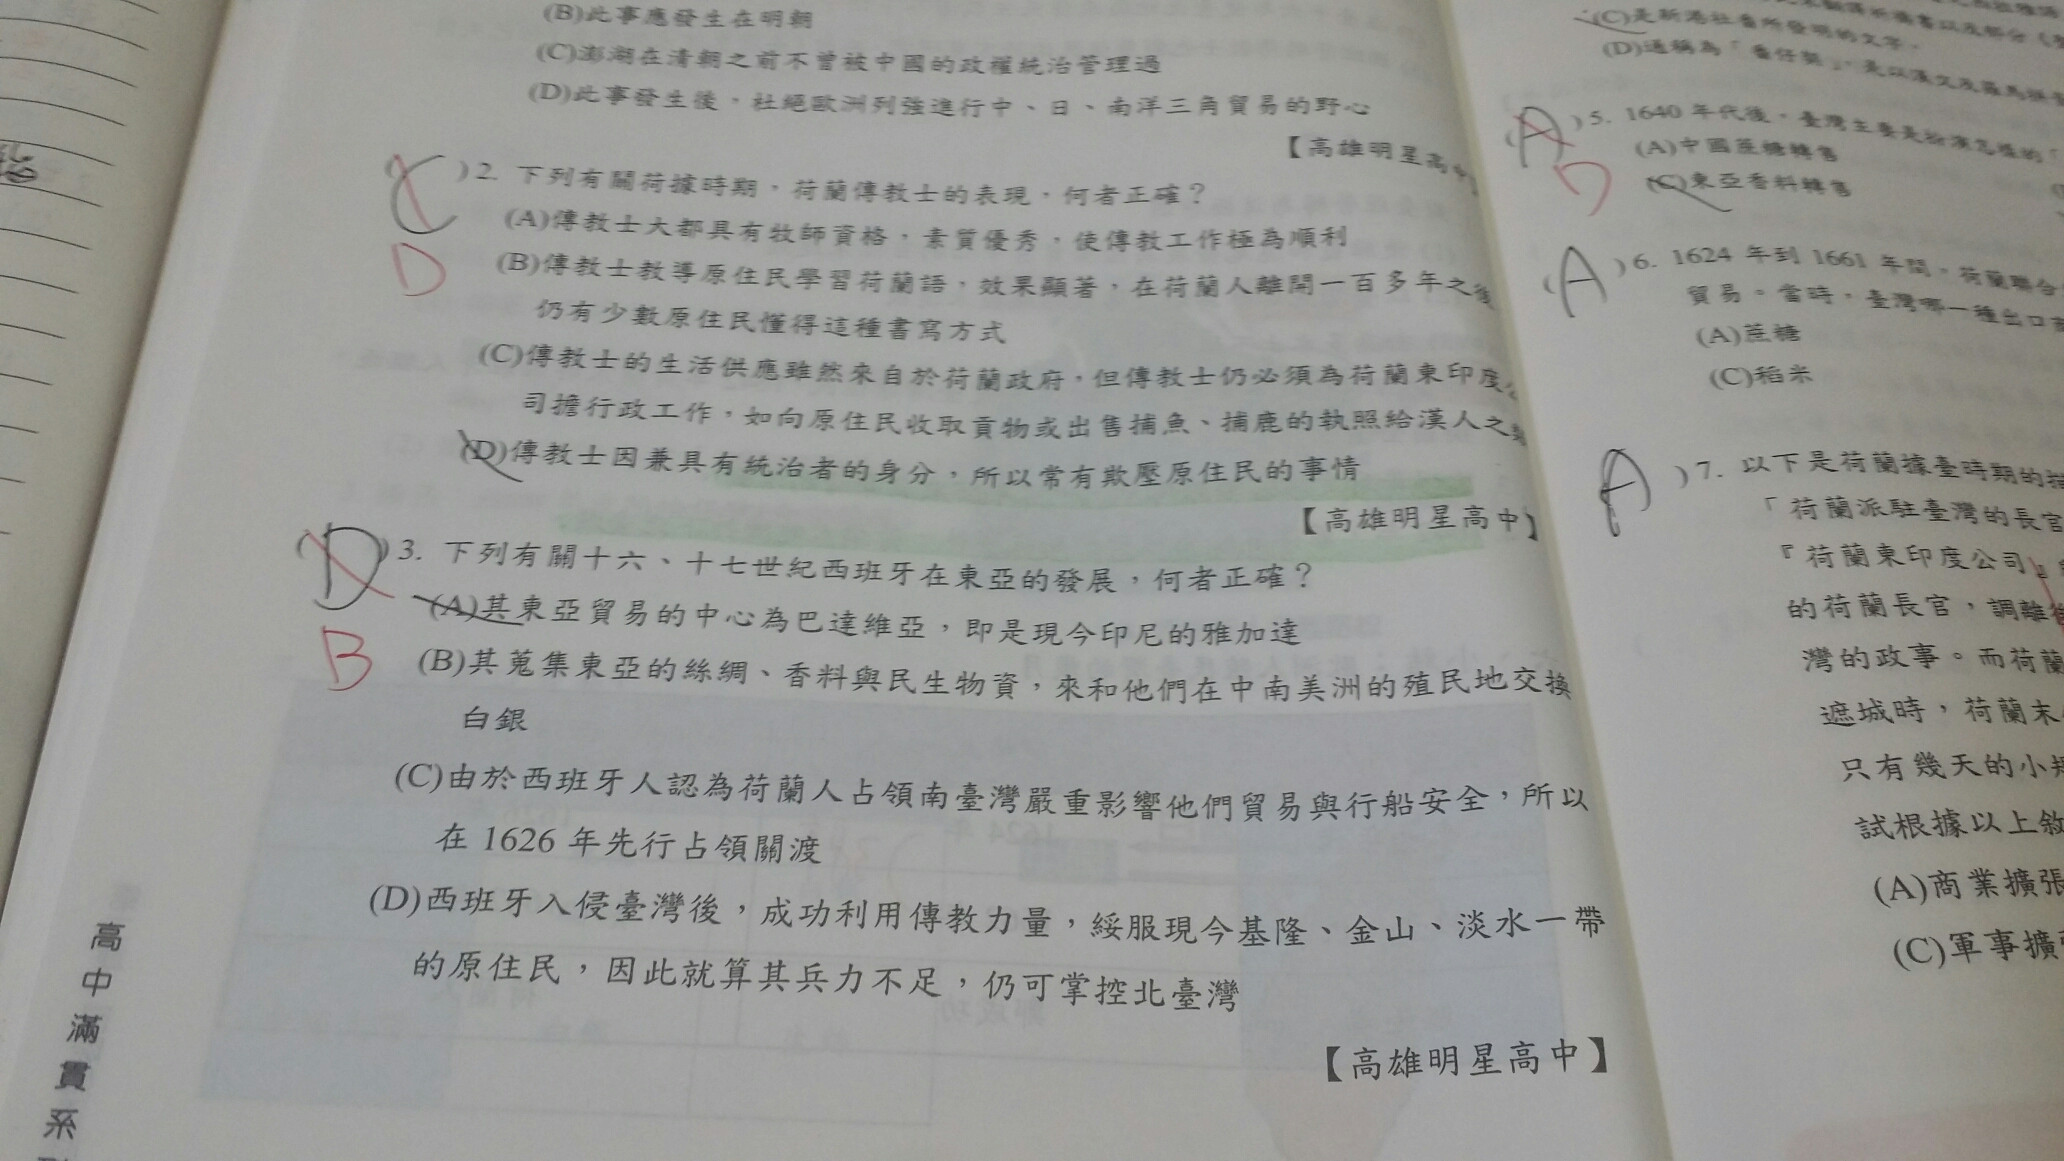 (B)此事應發生在明朝
(C)澎湖在清朝之前不曾被中國的政權統治管理過
(D)此事發生後,杜絕歐洲列強進行中、日、南洋三角貿易的野心
【高雄明星高中】
C
D
)2. 下列有關荷據時期,荷蘭傳教士的表現,何者正確?
(A)傳教士大都具有牧師資格,素質優秀,使傳教工作極為順利
(B)傳教士教導原住民學習荷蘭語,效果顯著,在荷蘭人離開一百多年之後
仍有少數原住民懂得這種書寫方式
(C)傳教士的生活供應雖然來自於荷蘭政府,但傳教士仍必須為荷蘭東印度公
司擔行政工作,如向原住民收取貢物或出售捕魚、捕鹿的執照給漢人之類
(D)傳教士因兼具有統治者的身分,所以常有欺壓原住民的事情
【高雄明星高中】
(D
B
)3. 下列有關十六、十七世紀西班牙在東亞的發展,何者正確?
(A)其東亞貿易的中心為巴達維亞,即是現今印尼的雅加達
(B)其蒐集東亞的絲綢、香料與民生物資,來和他們在中南美洲的殖民地交換
白銀
(C)由於西班牙人認為荷蘭人占領南臺灣嚴重影響他們貿易與行船安全,所以
在 1626 年先行占領關渡
(D)西班牙入侵臺灣後,成功利用傳教力量,綏服現今基隆、金山、淡水一帶
的原住民,因此就算其兵力不足,仍可掌控北臺灣
【高雄明星高中】
高中滿貫系
(C)是新港社番所發明的文字。
(D)通稱為「番仔契」,是以漢文及羅馬拼
(A
D
)5. 1640 年代後,臺灣主要是扮演怎樣的「
(A)中國蔗糖轉售
(C)東亞香料轉售
(A
)6. 1624 年到 1661 年間,荷蘭聯合
貿易。當時,臺灣哪一種出口
(A)蔗糖
(C)稻米
A
)7. 以下是荷蘭據臺時期的
「荷蘭派駐臺灣的長官
『荷蘭東印度公司』
的荷蘭長官,調離
灣的政事。而荷蘭
遮城時,荷蘭末
只有幾天的小
試根據以上敘
(A)商業擴張
(C)軍事擴